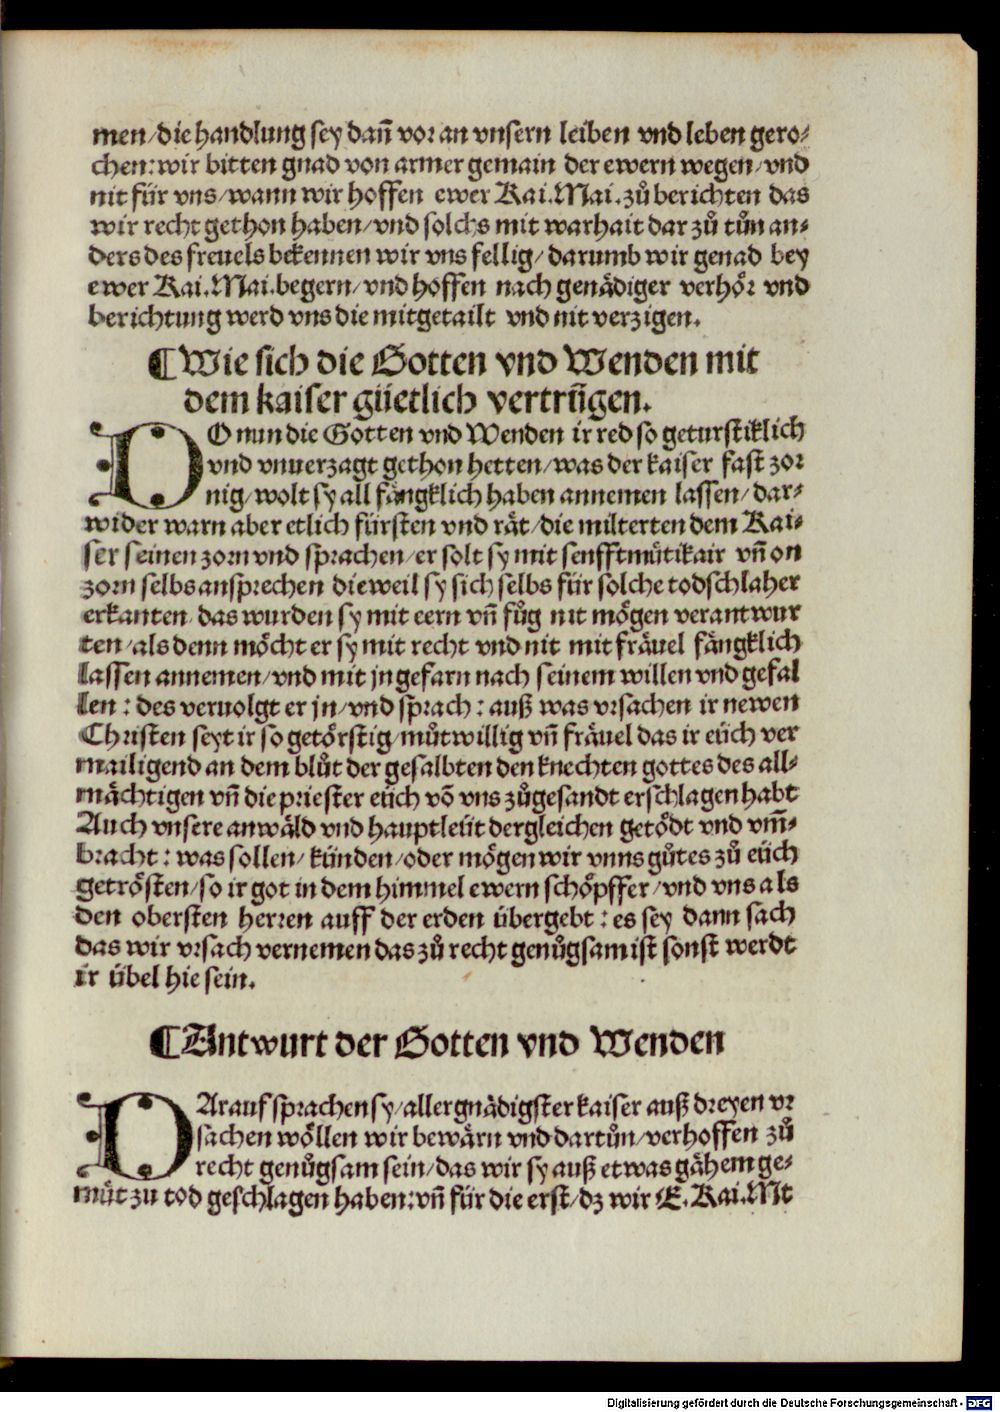 men/die handlung sey dañ vor an vnsern leiben vnd leben gero⸗
chen:wir bitten gnad von armer gemain der ewern wegen/vnd
nit für vns/wann wir hoffen ewer Kai.Mai.zů berichten das
wir recht gethon haben/vnd solchs mit warhait dar zů tůn an⸗
ders des freuels bekennen wir vns fellig/darumb wir genad bey
ewer Kai.Mai.begern/vnd hoffen nach genädiger verhör vnd
berichtung werd vns die mitgetailt vnd nit verzigen.
¶Wie sich die Gotten vnd Wenden mit
dem kaiser güetlich vertrůgen.
DO nun die Gotten vnd Wenden ir red so geturstiklich
vnd vnuerzagt gethon hetten/was der kaiser fast zor
nig/wolt sy all fängklich haben annemen lassen/dar⸗
wider warn aber etlich fürsten vnd rät/die milterten dem Kai⸗
ser seinen zorn vnd sprachen/er solt sy mit senfftmütikair vñ on
zorn selbs ansprechen dieweil sy sich selbs für solche todschlaher
erkanten/das wurden sy mit eern vñ fůg nit mögen verantwur
ten/als denn möcht er sy mit recht vnd nit mit fräuel fängklich
lassen annemen/vnd mit jn gefarn nach seinem willen vnd gefal
len : des veruolgt er jn/vnd sprach : auß was vrsachen ir newen
Christen seyt ir so getörstig/můtwillig vñ fräuel das ir eüch ver
mailigend an dem blůt der gesalbten den knechten gottes des all⸗
mächtigen vñ die priester eüch võ vns zůgesandt erschlagen habt
Auch vnsere anwäld vnd hauptleüt dergleichen getödt vnd vm̃⸗
bracht : was sollen/künden/oder mögen wir vnns gůtes zů eüch
getrösten/so ir got in dem himmel ewern schöpffer/vnd vns als
den obersten herren auff der erden übergebt : es sey dann sach
das wir vrsach vernemen das zů recht genůgsam ist sonst werdt
ir übel hie sein.
¶Antwurt der Gotten vnd Wenden
DArauf sprachen sy/allergnädigster kaiser auß dreyen vr
sachen wöllen wir bewärn vnd dartůn/verhoffen zů
recht genůgsam sein/das wir sy auß etwas gähem ge⸗
müt zu tod geschlagen haben:vñ für die erst/dz wir E.Kai.Mt
Digitalisierung gefördert durch die Deutsche Forschungsgemeinschaft - DFG